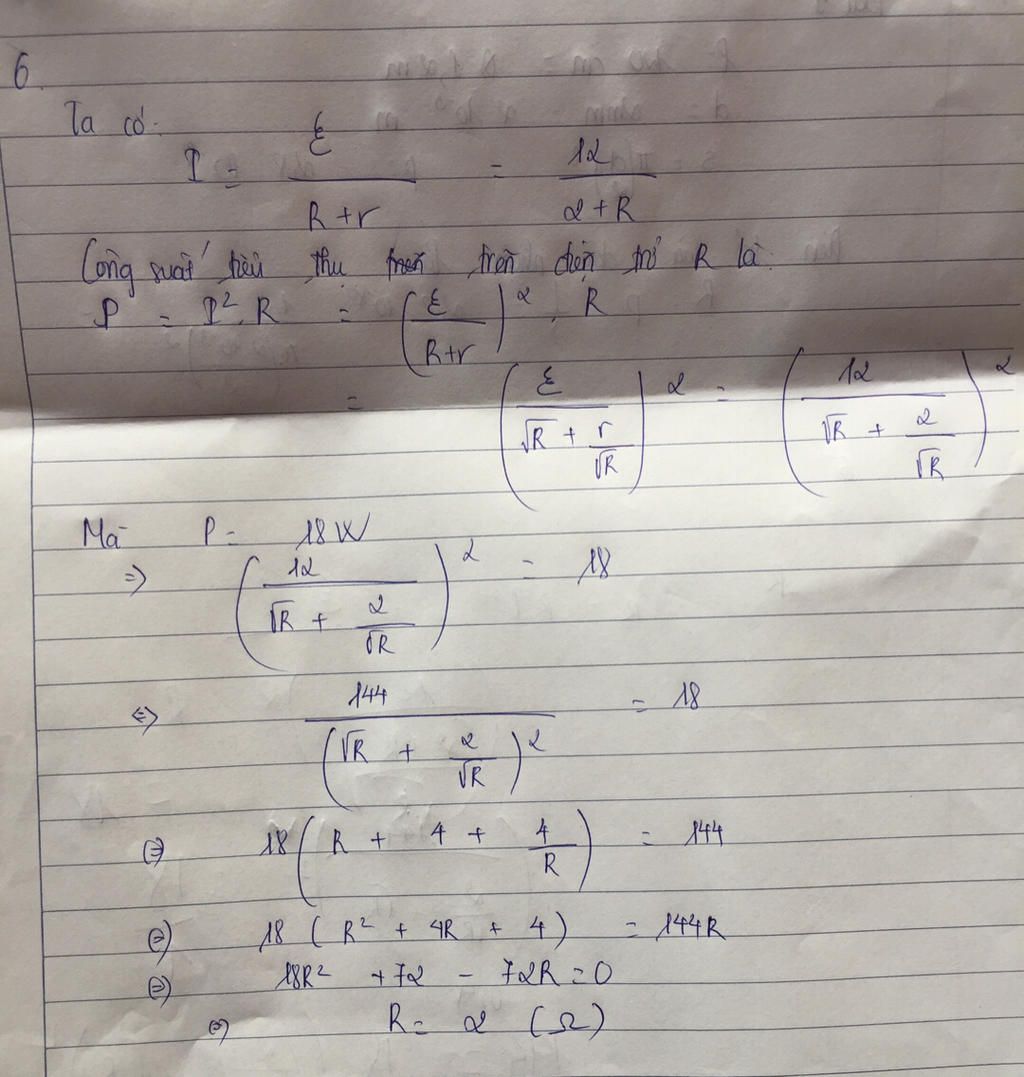 6.
Ta có:
I = ℰ / (R + r) = 12 / (2 + R)
Công suất tiêu thụ trên điện trở R là:
P = I². R = (ℰ / (R+r))² . R
= (ℰ / (√R + r/√R))² = (12 / (√R + 2/√R))²
Mà P = 18 W
=> (12 / (√R + 2/√R))² = 18
<=> 144 / (√R + 2/√R)² = 18
<=> 18 (R + 4 + 4/R) = 144
<=> 18 (R² + 4R + 4) = 144R
<=> 18R² + 72 - 72R = 0
<=> R = 2 (Ω)